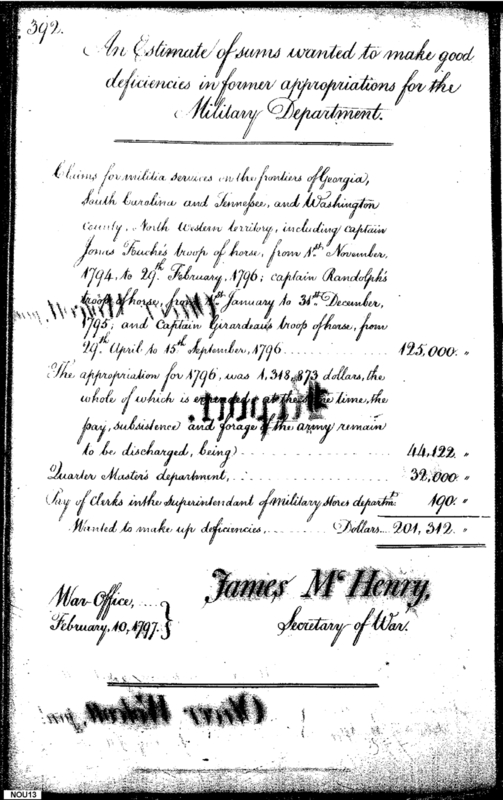 392.
An Estimate of sums wanted to make good
deficiencies in former appropriations for the
Military Department.
Claims for militia services on the frontiers of Georgia,
South Carolina and Tennessee, and Washington
County, North Western territory, including captain
James troop of horse, from 1st. November,
1794, to 29th. February, 1796; captain Randolph's
troop of horse, from 1st. January to 31st. December,
1795; and Captain Girardeau's troop of horse, from
29th April to 15th September, 1796 125,000. "
The appropriation for 1796, was 1,318,873 dollars, the
whole of which is expended, at the same time, the
pay, subsistence and forage of the army remain
to be discharged, being) 44,122. "
Quarter Master's department, 32,000. "
Pay of Clerks in the Superintendant of military stores departmt. 190. "
Wanted to make up deficiencies, Dollars 201,312. "
James McHenry,
War Office,
February, 10, 1797.
Secretary of War.
Report.
Oliver Wolcott, junr.
NOU13